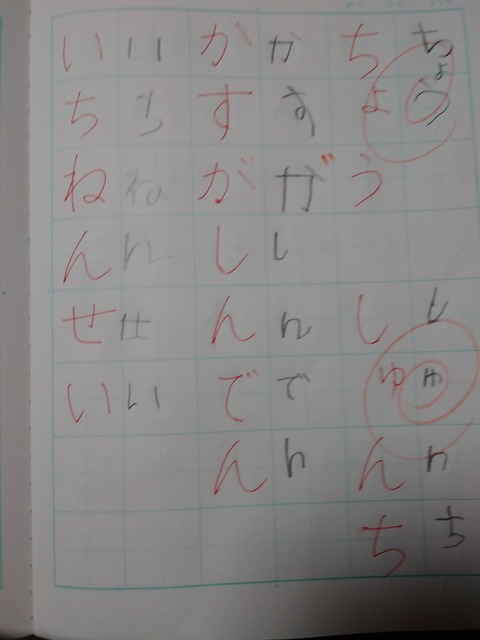 ちょう　しゅんち
ちょう　しゅんち
かすがしんでん
かすがしんでん
いちねんせい
いちねんせい